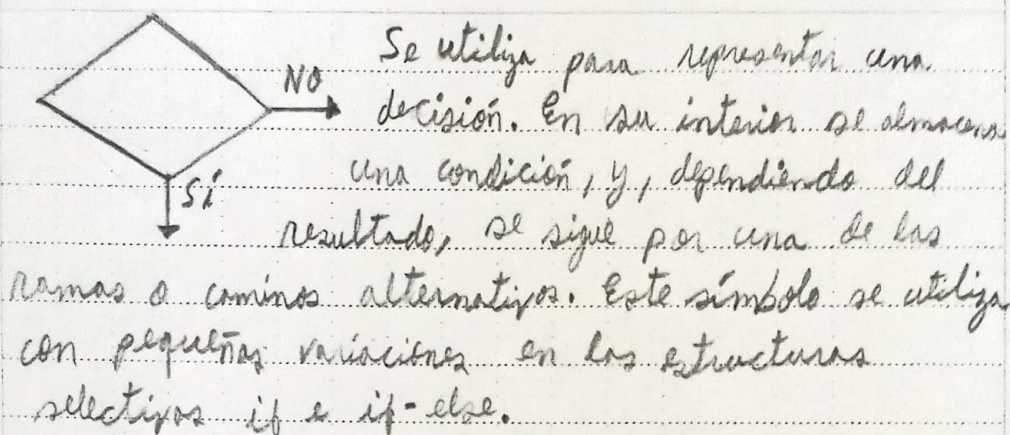 Se utiliza para representar una
NO
decisión. En su interior se almacena
una condición, y, dependiendo del
SÍ
resultado, se sigue por una de las
ramas o caminos alternativos. Este símbolo se utiliza
con pequeñas variaciones en las estructuras
selectivas if e if-else.